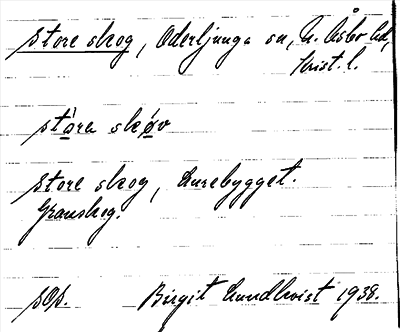 store skog, Oderljunga sn, N. Åsbo hd,
Krist. l.
stòra skóv
store skog, Lurebygget.
Granskog.
sOs. Birgit Lundkvist 1938.